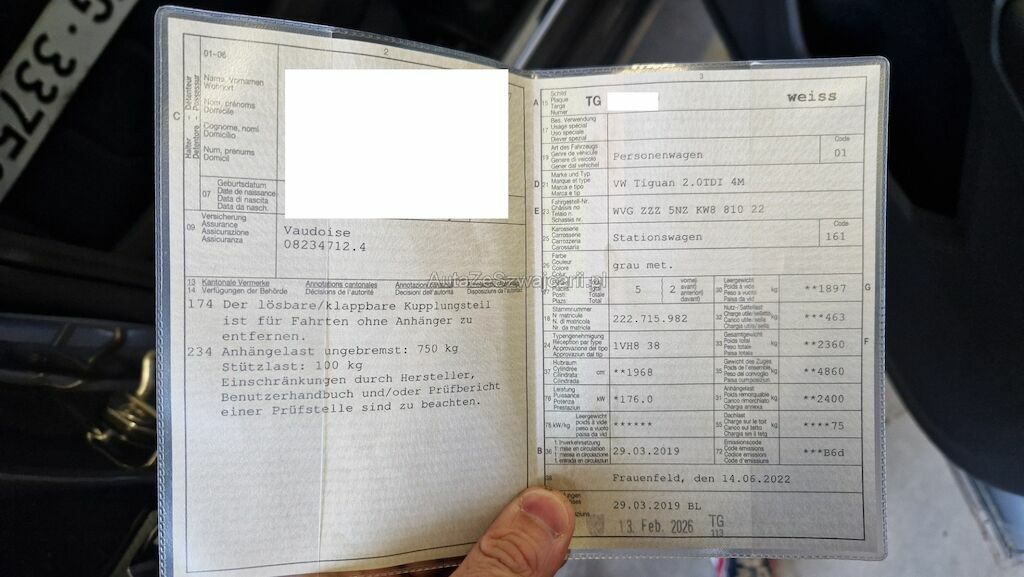 G·3375
2
01-06
Name, Vornamen
Wohnort
Nom, prénoms
Domicile
Cognome, nomi
Domicilio
Num, prenums
Domicil
C
Halter Détenteur
Detentore Possessur
07 Geburtsdatum
Date de naissance
Data di nascita
Data da nasch.
09 Versicherung
Assurance
Assicurazione
Assicuranza
Vaudoise
08234712.4
13 Kantonale Vermerke Annotations cantonales
14 Verfügungen der Behörde Décisions de l'autorité Decisioni dell'autorità
174 Der lösbare/klappbare Kupplungsteil
ist für Fahrten ohne Anhänger zu
entfernen.
234 Anhängelast ungebremst: 750 kg
Stützlast: 100 kg
Einschränkungen durch Hersteller,
Benutzerhandbuch und/oder Prüfbericht
einer Prüfstelle sind zu beachten.
AutaZeSzwajcarii.pl
3
A 15 Schild
Plaque
Targa
Numer
TG
weiss
17 Bes. Verwendung
Usage spécial
Uso speciale
Diever spezial
19 Art des Fahrzeugs
Genre de véhicule
Genere di veicolo
Gener dal vehichel
Personenwagen
Code
01
D 21 Marke und Typ
Marque et type
Marca e tipo
Marca e tip
VW Tiguan 2.0TDI 4M
E 23 Fahrgestell-Nr.
Châssis no
Telaio n.
Schassis nr.
WVG ZZZ 5NZ KW8 810 22
25 Karosserie
Carrosserie
Carrozzeria
Carossaria
Stationswagen
Code
161
Farbe
Couleur
Colore
Colur
grau met.
Total
Totale
Plazs Total
5
2
vorne
avant
anteriori
davant
30 Leergewicht
Poids à vide
Peso a vuoto
Paisa da vid
kg
**1897
G
18 Stammnummer
N matricule
N. di matricola
Nr. da matricla
222.715.982
32 Nutz-/Sattellast
Charge utile/sellette
Carico utile/sella
Chargia utila/sella
kg
***463
24 Typengenehmigung
Réception par type
Approvazione del tipo
Approvaziun dal tip
1VH8 38
33 Gesamtgewicht
Poids total
Peso totale
Paisa totala
kg
**2360
F
37 Hubraum
Cylindrée
Cilindrata
Cilindrada
cm³
**1968
35 Gewicht des Zuges
Poids de l'ensemble
Peso del convoglio
Paisa cumposiziun
kg
**4860
76 Leistung
Puissance
Potenza
Prestaziun
kW
*176.0
31 Anhängelast
Poids remorquable
Carico rimorchiato
Chargia annexa
kg
**2400
78 kW/kg Leergewicht
poids à vide
peso a vuoto
paisa da vid
******
55 Dachlast
Charge sur le toit
Carico sul tetto
Chargia sin il tetg
kg
****75
B 36 1. Inverkehrsetzung
1. mise en circulation
1. messa in circolazione
1. entrada en circulaziun
29.03.2019
72 Emissionscode
Code émissions
Codice emissioni
Code d'emissiuns
***B6d
38
Frauenfeld, den 14.06.2022
29.03.2019 BL
13. Feb. 2026 TG
113